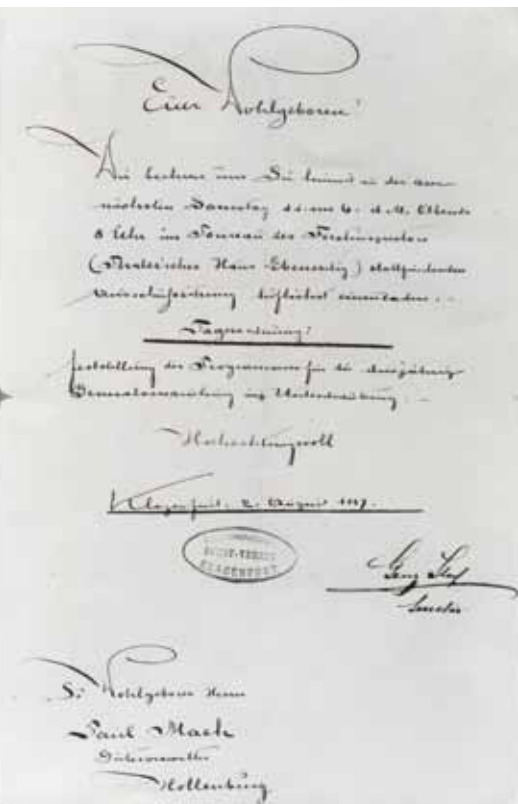 Euer Wohlgeboren!
Wir beehren uns Sie hiemit zu der am
nächsten Samstag d. i. am 6. d. M. Abends
8 Uhr im Bureau des
Haus Ebenerdig) stattfindenden
Ausschußsitzung höflichst einzuladen.
Tagesordnung:
Feststellung des Programmes für die diesjährige
Generalversammlung
Hochachtungsvoll
Klagenfurt, 2. August
KLAGENFURT
Sr Wohlgeboren Herrn
Paul Mach
Güterverwalter
Hollenburg